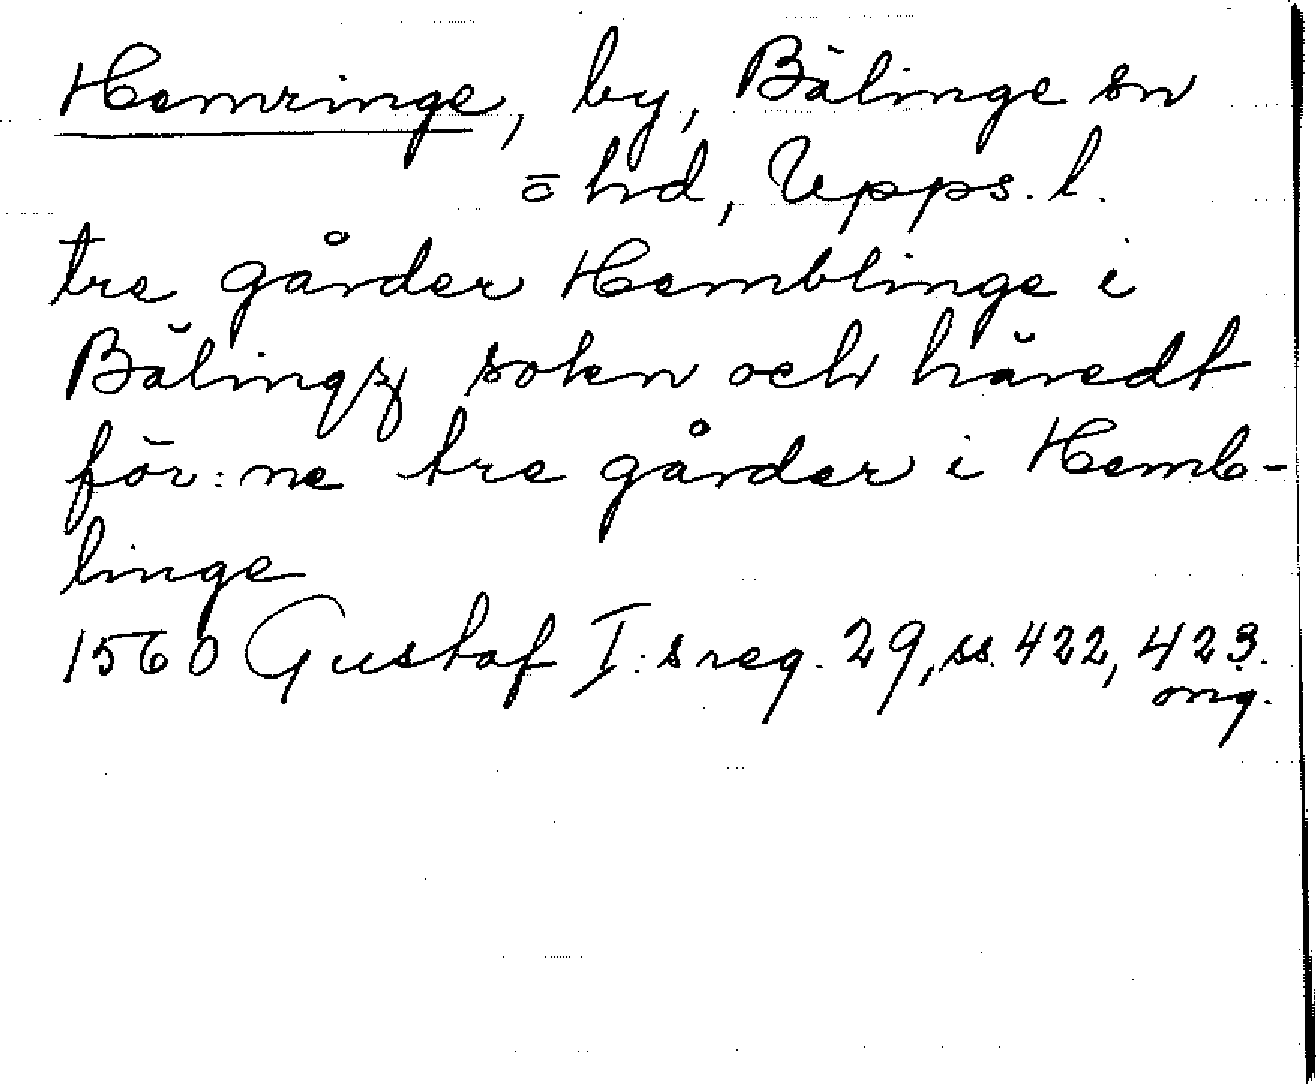 Hemringe, by, Bälinge sn
o hd, Upps. l.
tre gårder Hemblinge i
Bälingz sokn och häredt
för:ne tre gårder i Hemb-
linge
1560 Gustaf I:s reg. 29, ss. 422, 423.